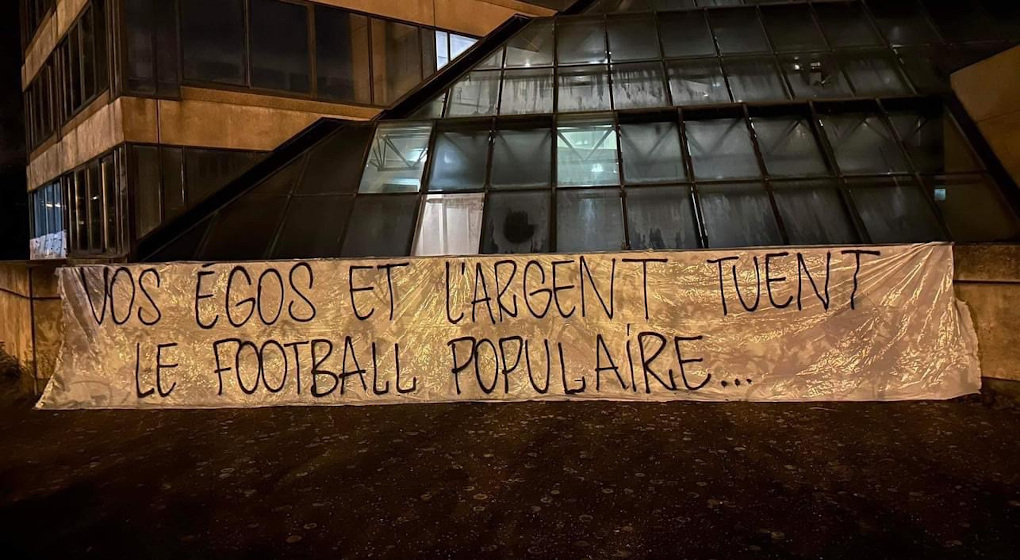 VOS ÉGOS ET L'ARGENT TUENT
LE FOOTBALL POPULAIRE...